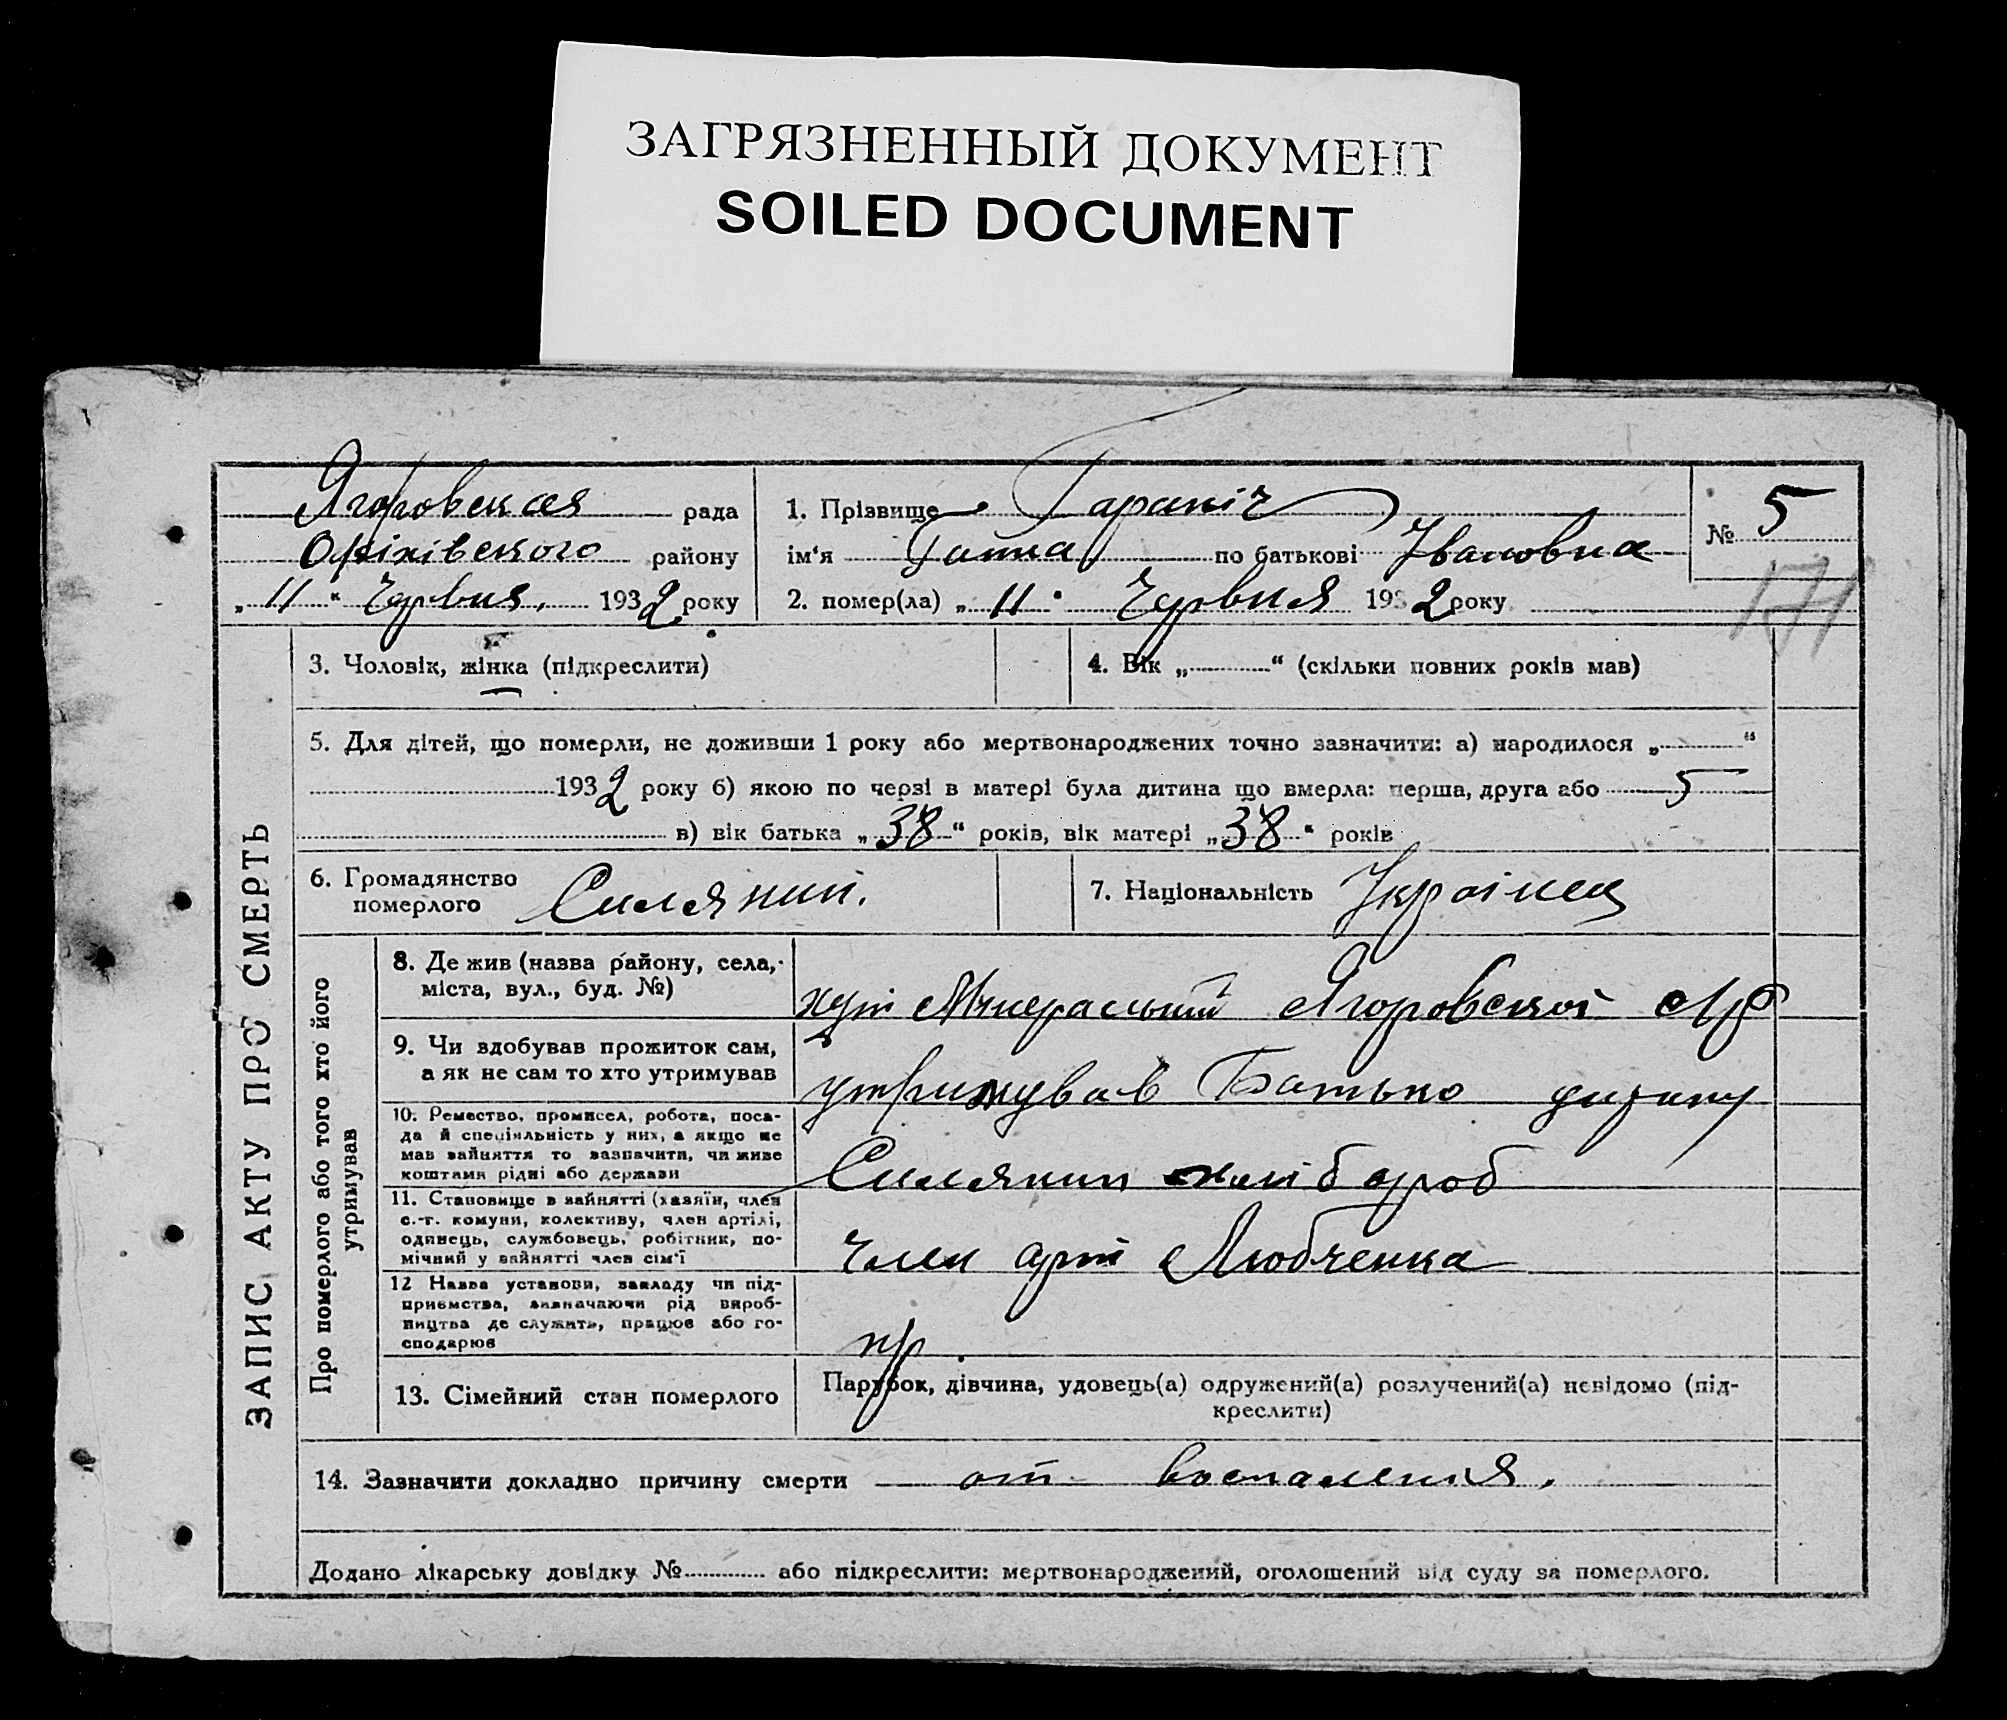 ЗАГРЯЗНЕННЫЙ ДОКУМЕНТ
SOILED DOCUMENT
Ягоровская рада
Оріхівського району
„11“ Червня. 1932 року
1. Прізвище Гараніч
ім‘я Ганна по батькові Івановна
2. помер(ла) „11“ Червня 1932 року
№ 5
171
ЗАПИС АКТУ ПРО СМЕРТЬ
3. Чоловік, жінка (підкреслити)
4. Вік „ “ (скільки повних років мав)
5. Для дітей, що померли, не доживши 1 року або мертвонароджених точно зазначити: а) народилося „ “
1932 року б) якою по черзі в матері була дитина що вмерла: перша, друга або 5
в) вік батька „38“ років, вік матері „38“ років
6. Громадянство померлого Силянин.
7. Національність Украінец
Про померлого або того хто його утримував
8. Де жив (назва району, села,
міста, вул., буд. №)
хут Ягоровской
9. Чи здобував прожиток сам,
а як не сам то хто утримував
утримував Батько
10. Ремество, промисел, робота, поса-
да й спеціяльність у них, а якщо не
мав зайняття то зазначити, чи живе
коштами рідні або держави
Силянин хлібороб
11. Становище в зайнятті (хазяїн, член
с.-г. комуни, колективу, член артілі,
одинець, службовець, робітник, по-
мічний у зайнятті член сім‘ї
член арт Любченка
12 Назва установи, закладу чи під-
приємства, визначаючи рід вироб-
ництва де служить, працює або го-
сподарює
пр.
13. Сімейний стан померлого
Парубок, дівчина, удовець(а) одружений(а) розлучений(а) невідомо (під-
креслити)
14. Зазначити докладно причину смерти от воспаления.
Додано лікарську довідку № або підкреслити: мертвонароджений, оголошений від суду за померлого.